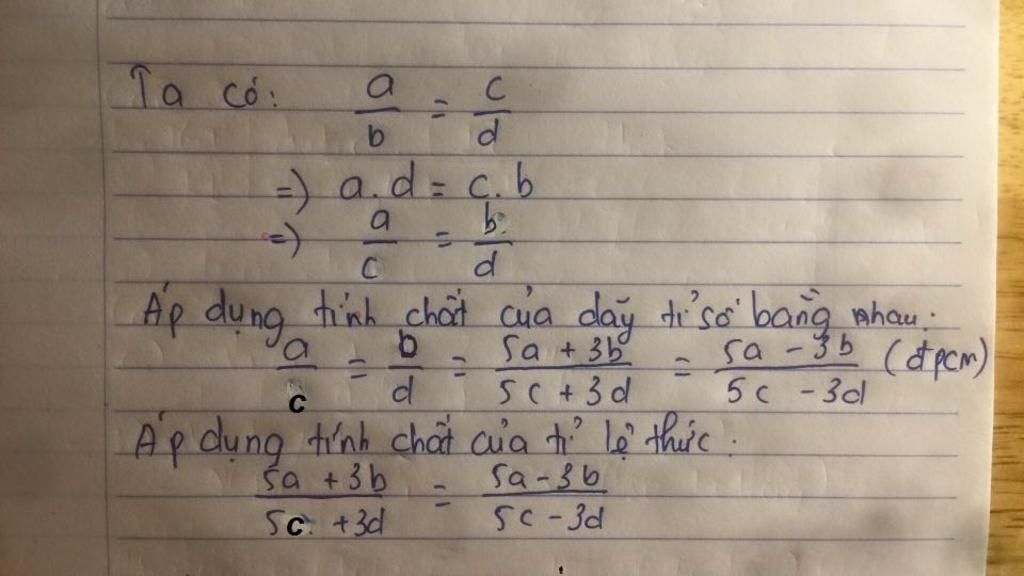 Ta có: a/b = c/d
=) a.d = c.b
=) a/c = b/d
Áp dụng tính chất của dãy tỉ số bằng nhau:
a/c = b/d = (5a + 3b)/(5c + 3d) = (5a - 3b)/(5c - 3d) (đpcm)
Áp dụng tính chất của tỉ lệ thức:
(5a + 3b)/(5c + 3d) = (5a - 3b)/(5c - 3d)